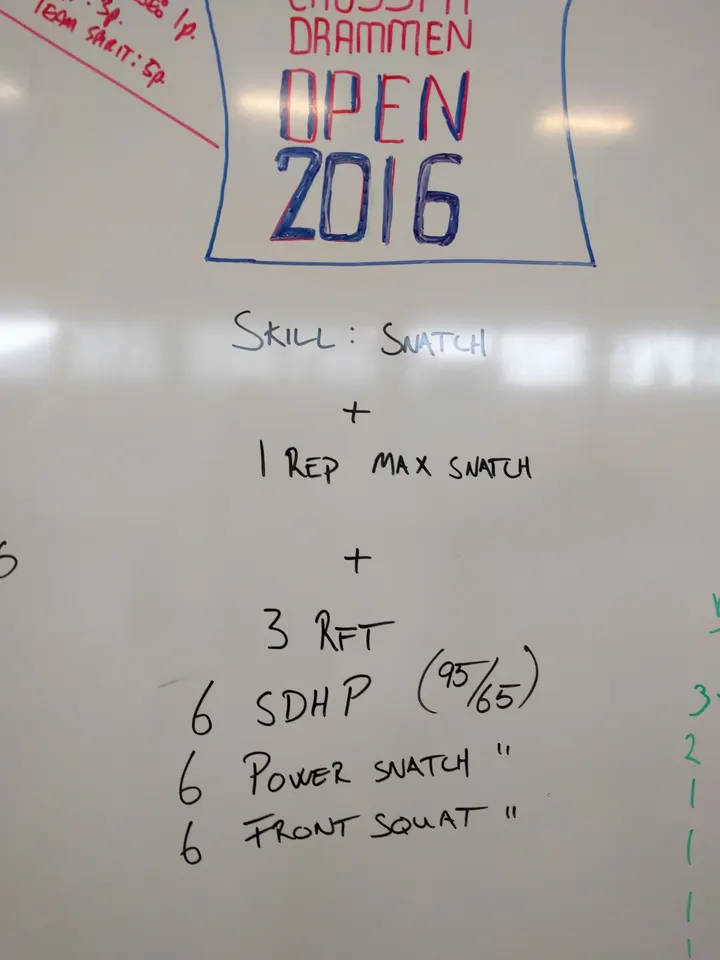 1p.
: 3p.
TEAM SPIRIT: 5p.
CROSSFIT
DRAMMEN
OPEN
2016
SKILL: SNATCH
+
1 REP MAX SNATCH
+
3 RFT
6 SDHP (95/65)
6 POWER SNATCH "
6 FRONT SQUAT "
3
2
1
1
1
1